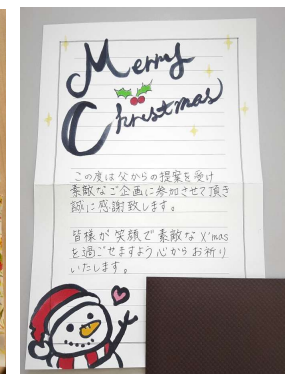 Merry
Christmas
この度は父からの提案を受け
素敵なご企画に参加させて頂き
誠に感謝致します。
皆様が笑顔で素敵なX'mas
を過ごせますよう心からお祈り
いたします。